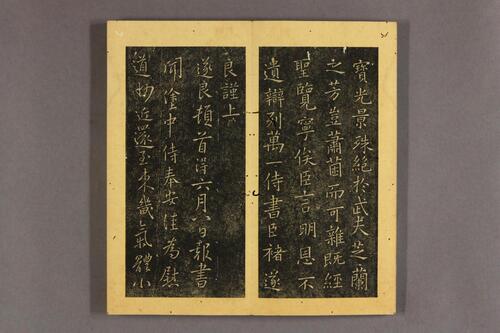 寶光景殊絕於武夫芝蘭
之芳豈蕭茵而可雜既經
聖覽寧俟臣言明恩不
遺辯列萬一侍書臣褚遂
良謹上
遂良頓首得六月八日報書
聞塗中侍奉安佳為慰
道近還至東畿氣體小